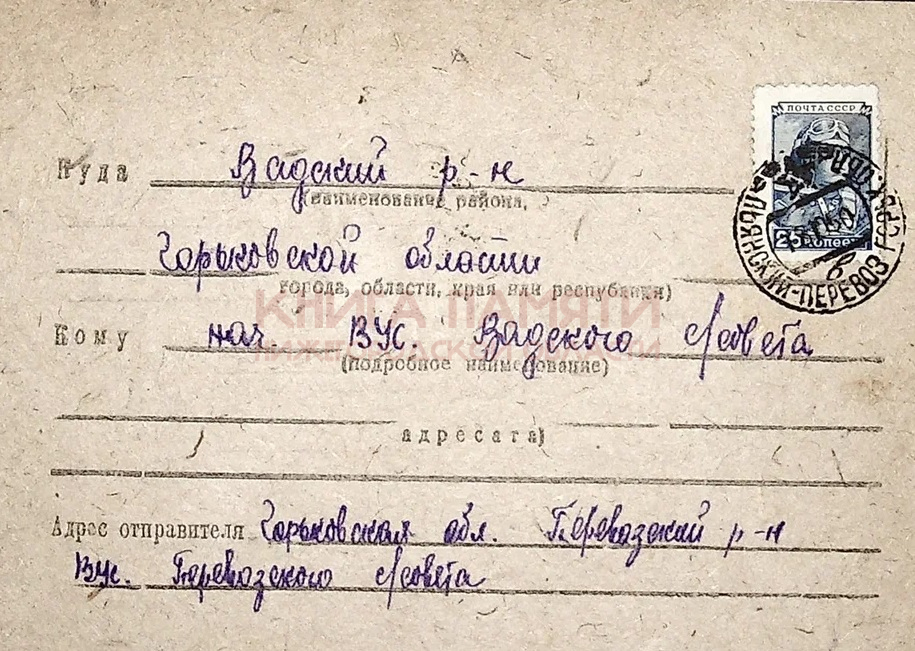 ПОЧТА СССР
25 КОПЕЕК
ПЬЯНСКИЙ-ПЕРЕВОЗ ГОРЬК.
50
в
Куда Вадский р-н
(наименование района,
Горьковской области
города, области, края или республики)
КНИГА ПАМЯТИ
НИЖЕГОРОДСКОЙ ОБЛАСТИ
Кому нач. ВУС. Вадского с/совета
(подробное наименование)
адресата)
Адрес отправителя Горьковская обл. Перевозский р-н
Вус. Перевозского с/совета